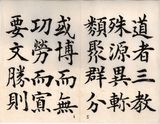 道者三教
殊源異軫
類聚群分
或博而無
功勞而寡
要文勝則